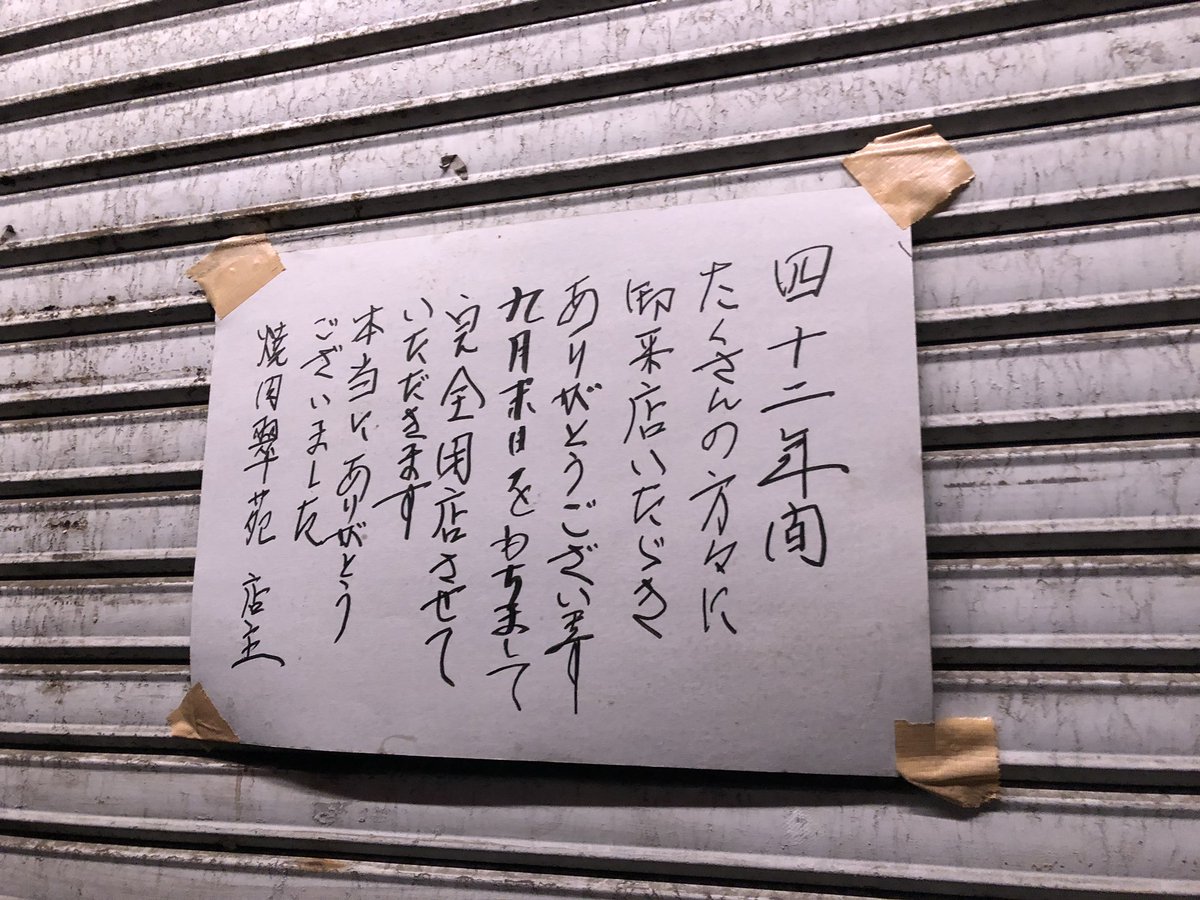 四十二年間
たくさんの方々に
御来店いただき
ありがとうございます
九月末日をもちまして
完全閉店させて
いただきます
本当に ありがとう
ございました
焼肉翠苑 店主